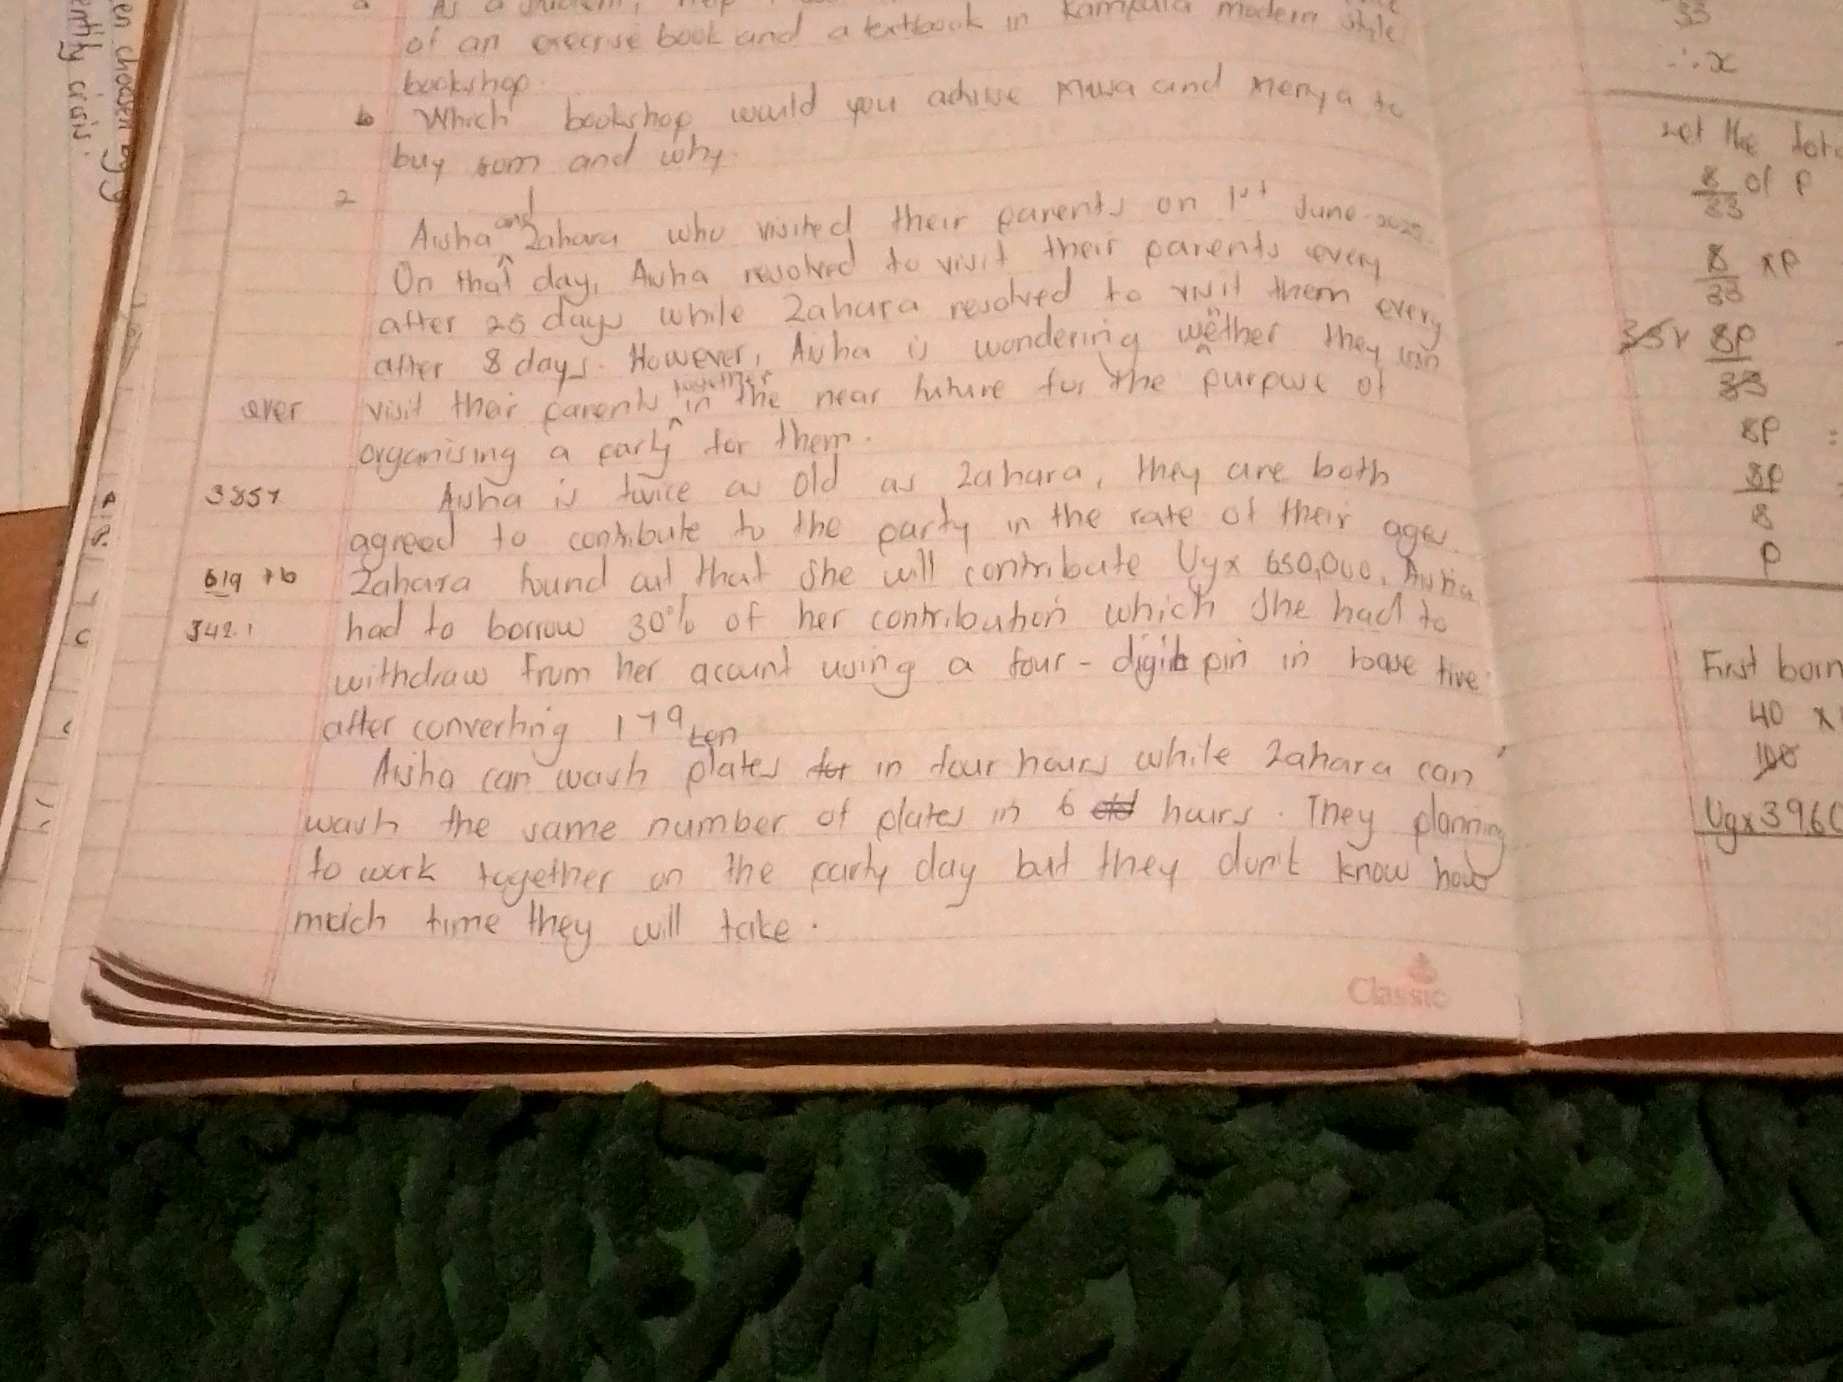 en choosen by y
ently crisis.
a As a student, help
of an execrise book and a textbook in Kampala modern style
bookshop.
b Which bookshop would you advise Musa and Menya to
buy from and why.
2
Aisha and Zahara who visited their parents on 1st June 2025.
On that day, Aisha resolved to visit their parents every
after 25 days while Zahara resolved to visit them every
after 8 days. However, Aisha is wondering wether they can
ever visit their parents together in the near future for the purpose of
organising a party for them.
3857 Aisha is twice as old as Zahara, they are both
agreed to contribute to the party in the rate of their ages.
619 +6 Zahara found out that she will contribute Ugx 650,000. Aisha
342.1 had to borrow 30% of her contribution which she had to
withdraw from her acount using a four-digit pin in base five
after converting 179ten
Aisha can wash plates for in four hours while Zahara can
wash the same number of plates in 6 hours. They planning
to work together on the party day but they don't know how
much time they will take.
Classic
33
∴x
Let the tota
8/33 of P
8/33 xP
8P
33
8P =
8P
8
P
First born
40 x
100
Ugx 3960